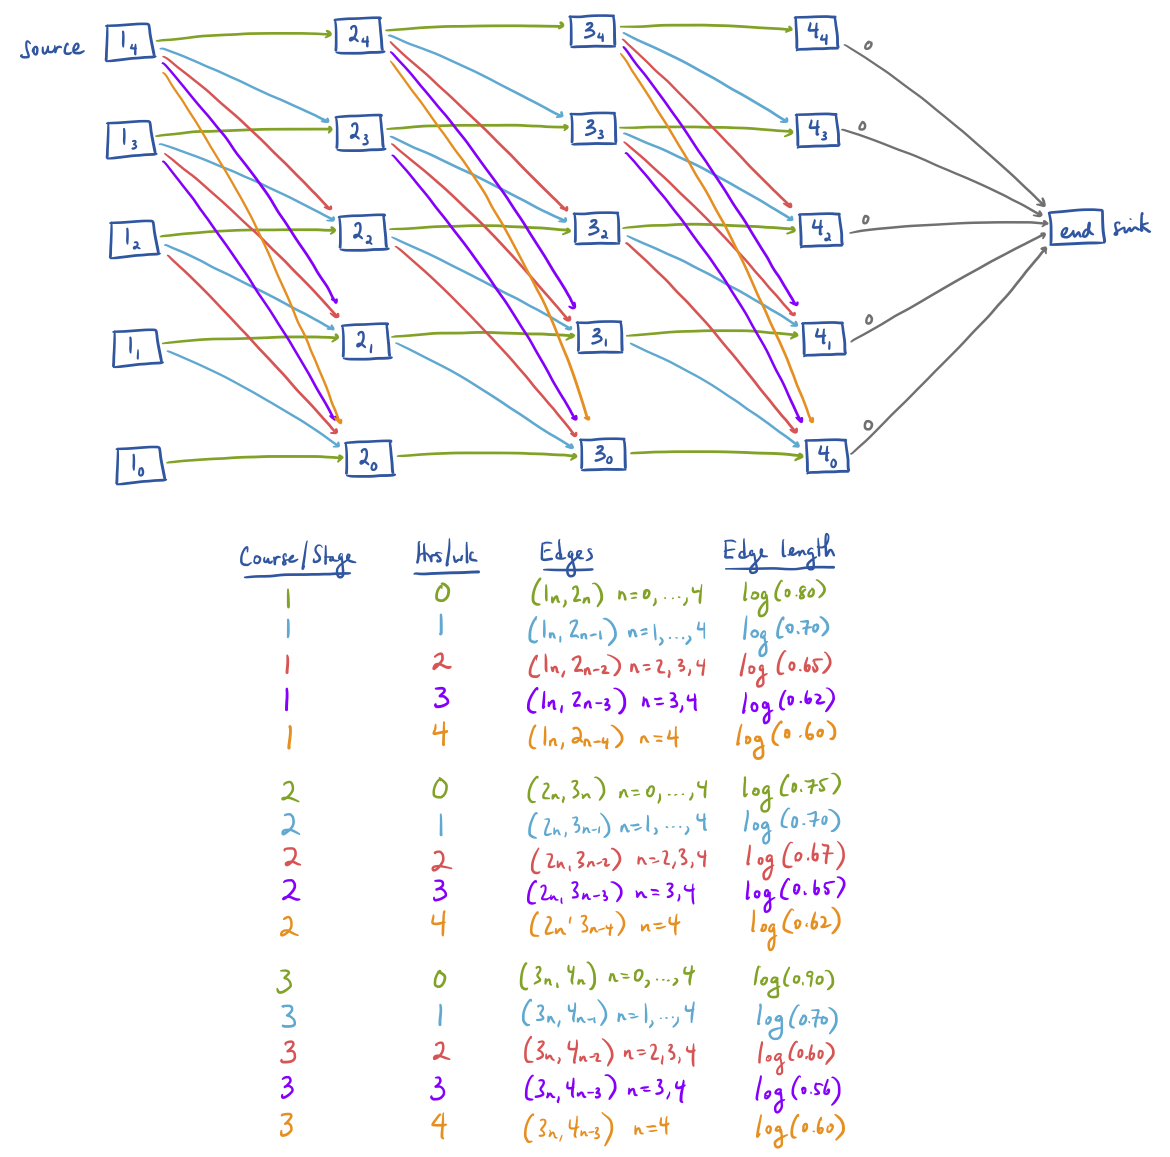 1₄ 2₄ 3₄ 4₄ 0
source
1₃ 2₃ 3₃ 4₃ 0
1₂ 2₂ 3₂ 4₂ 0 end sink
1₁ 2₁ 3₁ 4₁ 0
1₀ 2₀ 3₀ 4₀ 0
Course/Stage Hrs/wk Edges Edge length
1 0 (1n, 2n) n=0, ..., 4 log(0.80)
1 1 (1n, 2n-1) n=1, ..., 4 log(0.70)
1 2 (1n, 2n-2) n=2, 3, 4 log(0.65)
1 3 (1n, 2n-3) n=3, 4 log(0.62)
1 4 (1n, 2n-4) n=4 log(0.60)
2 0 (2n, 3n) n=0, ..., 4 log(0.75)
2 1 (2n, 3n-1) n=1, ..., 4 log(0.70)
2 2 (2n, 3n-2) n=2,3,4 log(0.67)
2 3 (2n, 3n-3) n=3,4 log(0.65)
2 4 (2n' 3n-4) n=4 log(0.62)
3 0 (3n, 4n) n=0, ..., 4 log(0.90)
3 1 (3n, 4n-1) n=1, ..., 4 log(0.70)
3 2 (3n, 4n-2) n=2,3,4 log(0.60)
3 3 (3n, 4n-3) n=3,4 log(0.56)
3 4 (3n, 4n-3) n=4 log(0.60)